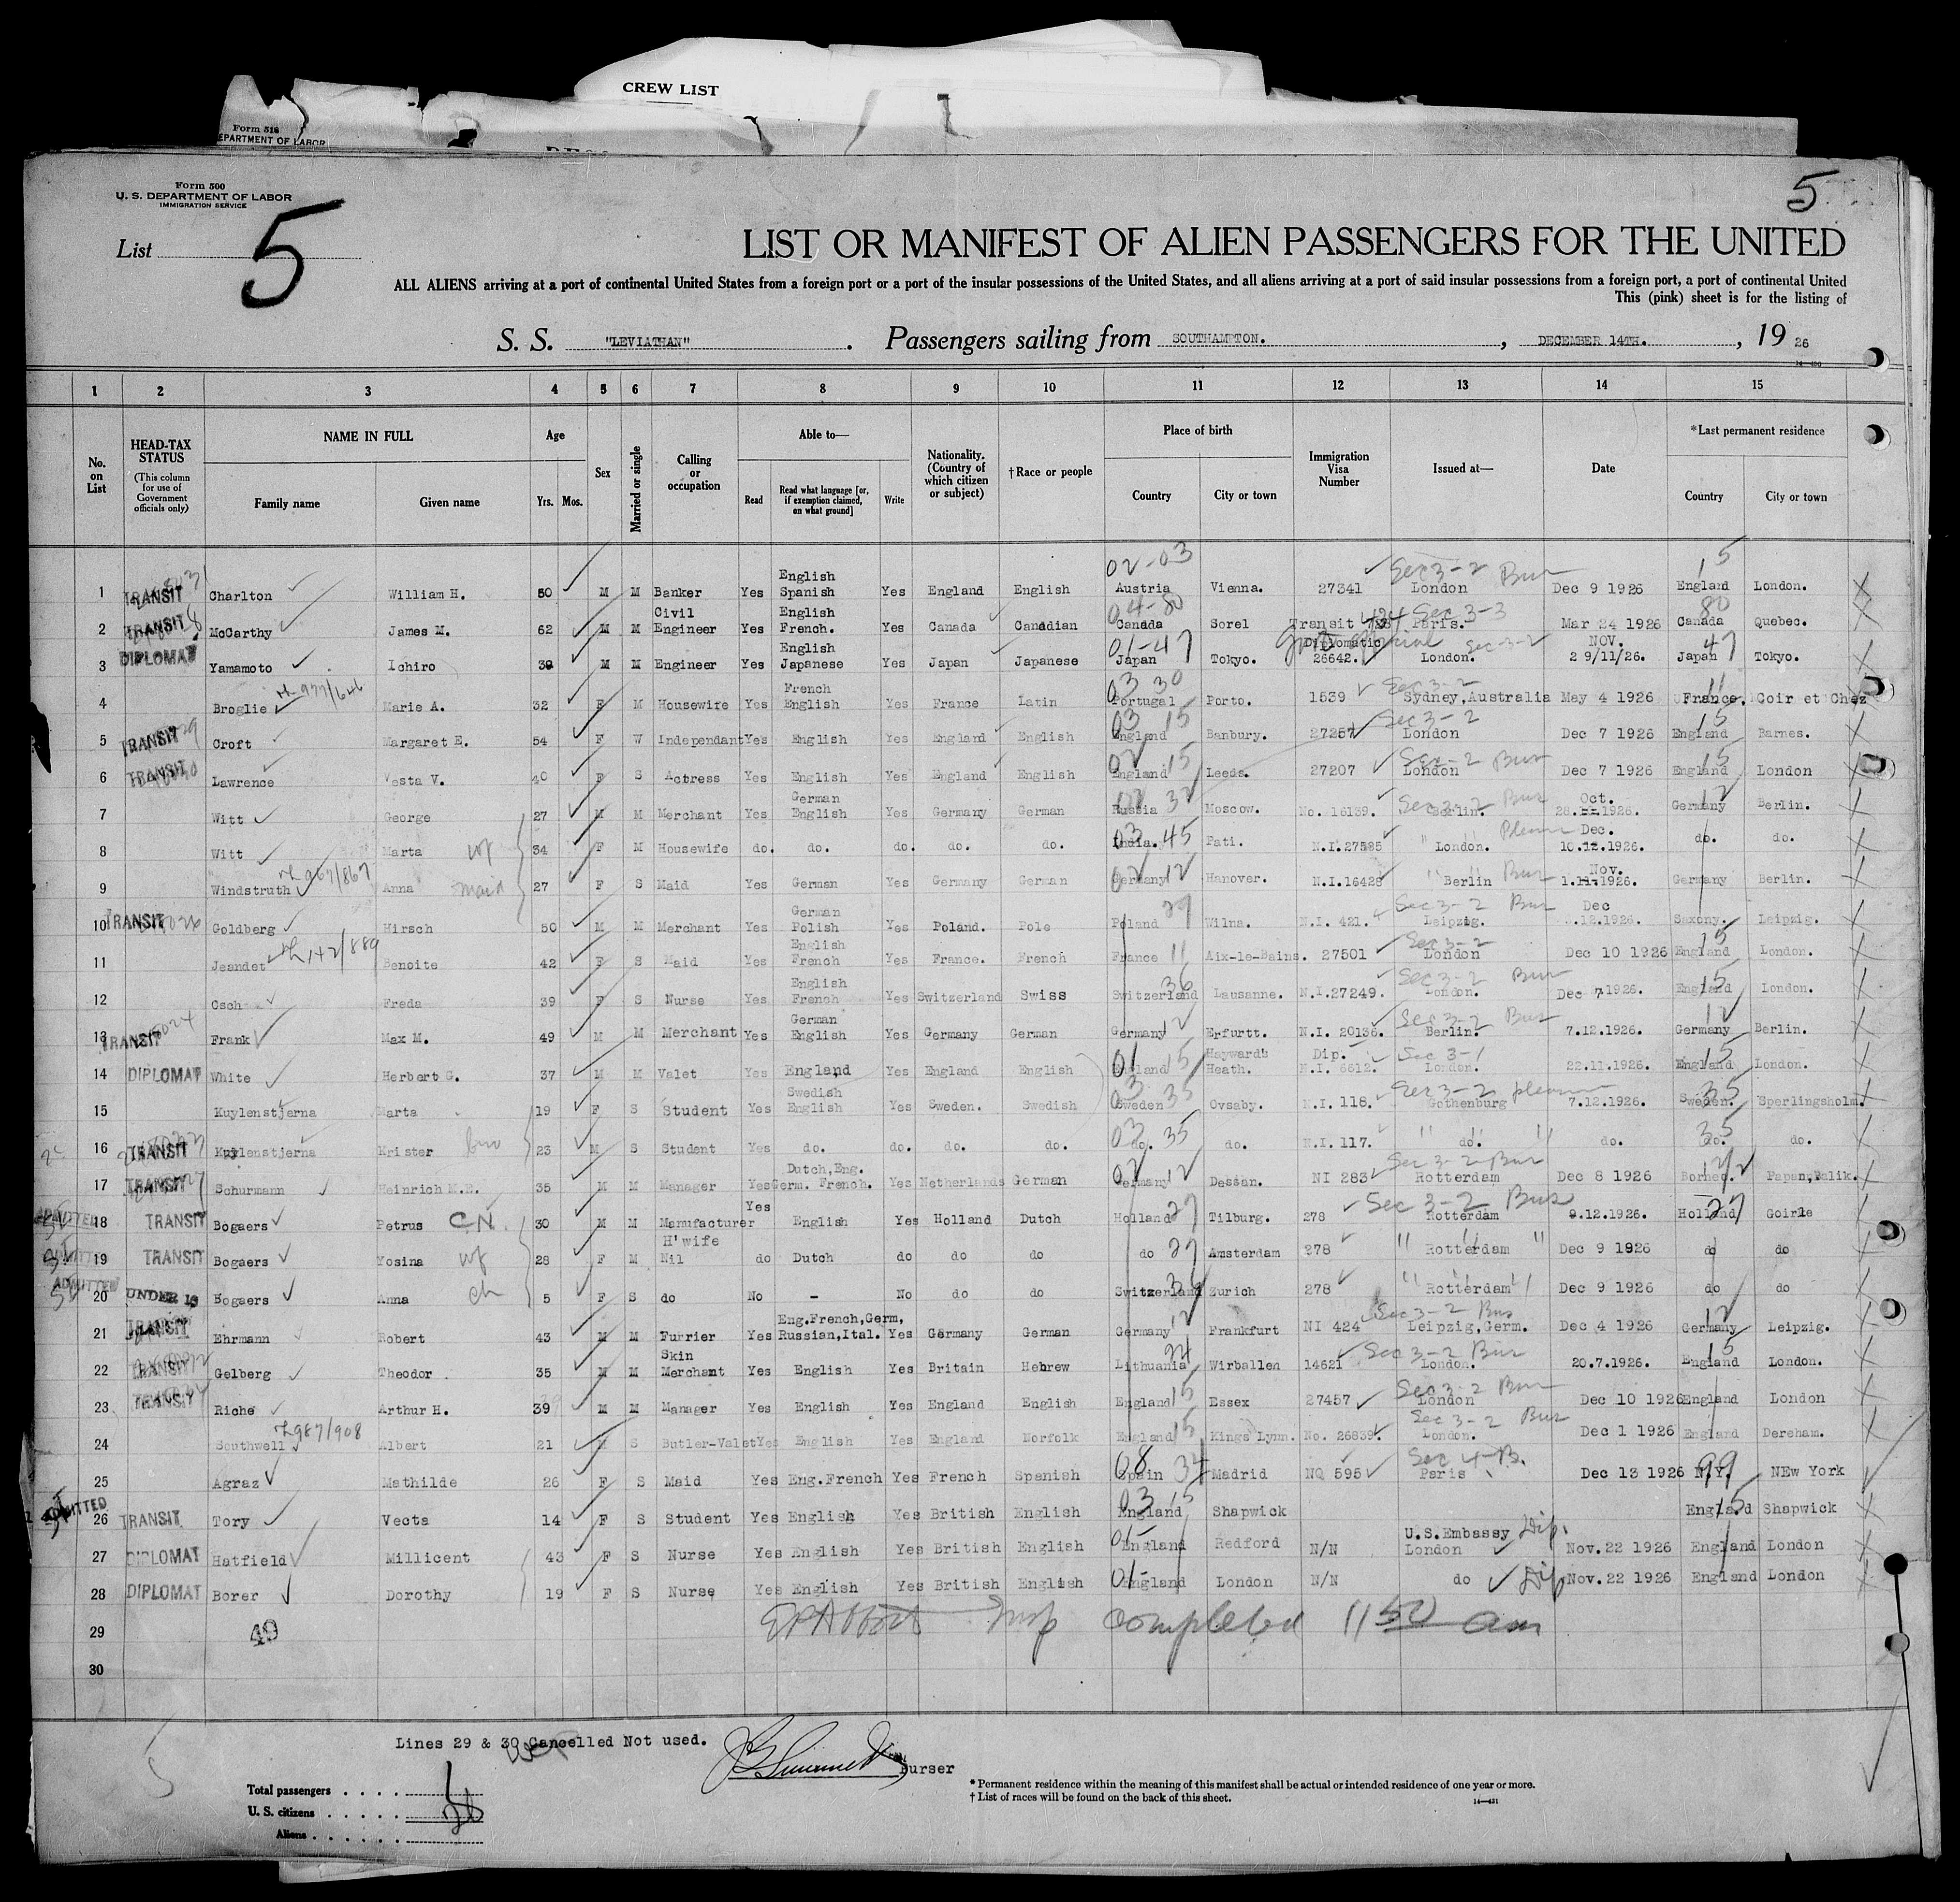 CREW LIST
Form 518
DEPARTMENT OF LABOR
Form 500
U. S. DEPARTMENT OF LABOR
IMMIGRATION SERVICE
List 5
5
LIST OR MANIFEST OF ALIEN PASSENGERS FOR THE UNITED
ALL ALIENS arriving at a port of continental United States from a foreign port or a port of the insular possessions of the United States, and all aliens arriving at a port of said insular possessions from a foreign port, a port of continental United
This (pink) sheet is for the listing of
S. S. "LEVIATHAN". Passengers sailing from SOUTHAMPTON., DECEMBER 14TH., 19 26
1 2 3 4 5 6 7 8 9 10 11 12 13 14 15
No. on List HEAD-TAX STATUS (This column for use of Government officials only) NAME IN FULL Family name Given name Age Yrs. Mos. Sex Married or single Calling or occupation Able to— Read Read what language [or, if exemption claimed, on what ground] Write Nationality. (Country of which citizen or subject) †Race or people Place of birth Country City or town Immigration Visa Number Issued at— Date *Last permanent residence Country City or town
1 TRANSIT Charlton William H. 50 M M Banker Yes English Spanish Yes England English 02-03 Austria Vienna. 27341 Sec 3-2 Bus London Dec 9 1926 15 England London.
2 TRANSIT McCarthy James M. 62 M M Civil Engineer Yes English French. Yes Canada Canadian 04-80 Canada Sorel Transit 424 Sec 3-3 Paris. Mar 24 1926 80 Canada Quebec.
3 DIPLOMAT Yamamoto Ichiro 39 M M Engineer Yes English Japanese Yes Japan Japanese 01-47 Japan Tokyo. Diplomatic 26642. Sec 3-2 London. NOV. 2 9/11/26. 47 Japan Tokyo.
4 Broglie 977/646 Marie A. 32 F M Housewife Yes French English Yes France Latin 03 30 Portugal Porto. 1539 Sec 3-2 Sydney,Australia May 4 1926 11 France. Coir et Chez
5 TRANSIT Croft Margaret E. 54 F W Independant Yes English Yes England English 03 15 England Banbury. 27257 Sec 3-2 London Dec 7 1926 15 England Barnes.
6 TRANSIT Lawrence Vesta V. 40 F S Actress Yes English Yes England English 02 15 England Leeds. 27207 Sec-2 Bus London Dec 7 1926 15 England London
7 Witt George 27 M M Merchant Yes German English Yes Germany German 32 Russia Moscow. No. 16139. Sec 3-2 Bus Berlin. Oct. 28. 1926. 12 Germany Berlin.
8 Witt Marta wf 34 F M Housewife do. do. do. do. do. 03 45 India. Pati. N.I.27585 " London. Dec. 10.12.1926. do. do.
9 Windstruth 967/867 Anna maid 27 F S Maid Yes German Yes Germany German 02 12 Germany Hanover. N.I.16428 " Berlin Bus Nov. 1.11.1926. Germany Berlin.
10 TRANSIT Goldberg Hirsch 50 M M Merchant Yes German Polish Yes Poland. Pole 29 Poland Wilna. N.I. 421. Sec 3-2 Bus Leipzig. Dec .12.1926. Saxony. Leipzig.
11 Jeandet 142/889 Benoite 42 F S Maid Yes English French Yes France. French France 11 Aix-le-Bains. 27501 Sec 3-2 London Dec 10 1926 15 England London.
12 Csch Freda 39 F S Nurse Yes English French Yes Switzerland Swiss 36 Switzerland Lausanne. N.I.27249. Sec 3-2 Bus London. Dec 7 1926. 15 England London.
13 TRANSIT Frank Max M. 49 M M Merchant Yes German English Yes Germany German Germany 12 Erfurtt. N.I. 20136. Sec 3-2 Bus Berlin. 7.12.1926. 12 Germany Berlin.
14 DIPLOMAT White Herbert G. 37 M M Valet Yes England Yes England English 01 15 England Hayward's Heath. Dip. N.I. 6612. Sec 3-1 London. 22.11.1926. 15 England London.
15 Kuylenstjerna Marta 19 F S Student Yes Swedish English Yes Sweden. Swedish 03 35 Sweden Ovsaby. N.I. 118. Sec 3-2 Gothenburg 7.12.1926. 35 Sweden. Sperlingsholm.
16 TRANSIT Kuylenstjerna Krister bro 23 M S Student Yes do. do. do. do. 03 35 do. do. N.I. 117. " do. " do. 35 do. do.
17 TRANSIT Schurmann Heinrich M.E. 35 M M Manager Yes Dutch,Eng. Germ. French. Yes Netherlands German 02 12 Germany Dessan. NI 283 Sec 3-2 Bus Rotterdam Dec 8 1926 Borneo. Papan,Balik.
ADMITTED 18 TRANSIT Bogaers Petrus 30 M M Manufacturer Yes English Yes Holland Dutch Holland 27 Tilburg. 278 Sec 3-2 Bus Rotterdam 9.12.1926. 27 Holland Goirle
ADMITTED 19 TRANSIT Bogaers Yosina wf 28 F M H'wife Nil do Dutch do do do do 27 Amsterdam 278 " Rotterdam " Dec 9 1926 do do
ADMITTED 20 UNDER 16 Bogaers Anna ch 5 F S do No - No do do Switzerland Zurich 278 " Rotterdam " Dec 9 1926 do do
21 TRANSIT Ehrmann Robert 43 M M Furrier Yes Eng.French,Germ, Russian,Ital. Yes Germany German Germany 12 Frankfurt NI 424 Sec 3-2 Bus Leipzig,Germ. Dec 4 1926 12 Germany Leipzig.
22 TRANSIT Gelberg Theodor 35 M M Skin Merchant Yes English Yes Britain Hebrew 24 Lithuania Wirballen 14621 Sec 3-2 Bus London. 20.7.1926. 15 England London.
23 TRANSIT Riche Arthur H. 39 M M Manager Yes English Yes England English England 15 Essex 27457 Sec 3-2 Bus London Dec 10 1926 England London
24 Southwell 987/908 Albert 21 M S Butler-Valet Yes English Yes England Norfolk England 15 Kings Lynn. No. 26839. Sec 3-2 Bus London. Dec 1 1926 England Dereham.
25 Agraz Mathilde 26 F S Maid Yes Eng.French Yes French Spanish 08 Spain 34 Madrid NQ 595 Sec 4-B. Paris Dec 13 1926 99 N.Y. NEw York
ADMITTED 26 TRANSIT Tory Vecta 14 F S Student Yes English Yes British English 03 15 England Shapwick 15 England Shapwick
27 DIPLOMAT Hatfield Millicent 43 F S Nurse Yes English Yes British English 01 England Redford N/N U.S.Embassy London Dip. Nov.22 1926 England London
28 DIPLOMAT Borer Dorothy 19 F S Nurse Yes English Yes British English 01 England London N/N do Dip Nov.22 1926 England London
29 49 Insp completed 11 50 am
30
Lines 29 & 30 Cancelled Not used.
Purser
Total passengers
U. S. citizens
Aliens
* Permanent residence within the meaning of this manifest shall be actual or intended residence of one year or more.
† List of races will be found on the back of this sheet.
14—421